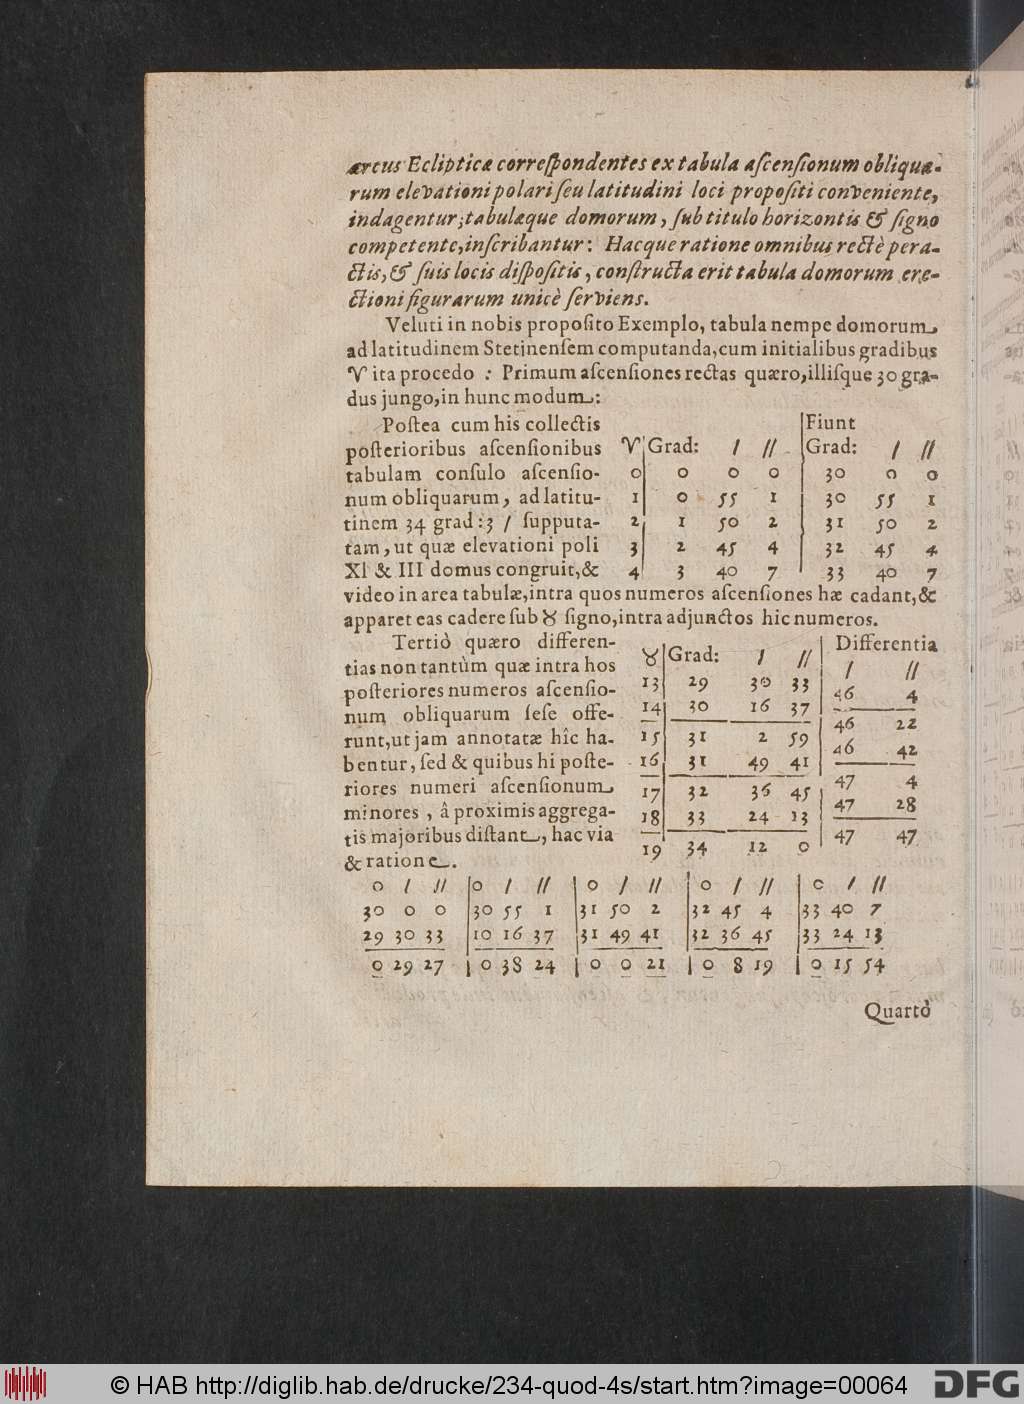 arcus Eclipticæ correſpondentes ex tabula aſcenſionum obliqua-
rum elevationi polari ſeu latitudini loci propoſiti conveniente,
indagentur; tabulæque domorum, ſub titulo horizontis & ſigno
competente, inſcribantur: Hacque ratione omnibus rectè pera-
ctis, & ſuis locis diſpoſitis, conſtructa erit tabula domorum ere-
ctioni figurarum unicè ſerviens.
Veluti in nobis propoſito Exemplo, tabula nempe domorum
ad latitudinem Stetinenſem computanda, cum initialibus gradibus
♈ ita procedo : Primum aſcenſiones rectas quæro, illiſque 30 gra-
dus jungo, in hunc modum:
Poſtea cum his collectis
poſterioribus aſcenſionibus
tabulam conſulo aſcenſio-
num obliquarum, ad latitu-
tinem 34 grad: 3 / ſupputa-
tam, ut quæ elevationi poli
XI & III domus congruit, &
Fiunt
♈ Grad: / // Grad: / //
0 0 0 0 30 0 0
1 0 55 1 30 55 1
2 1 50 2 31 50 2
3 2 45 4 32 45 4
4 3 40 7 33 40 7
video in area tabulæ, intra quos numeros aſcenſiones hæ cadant, &
apparet eas cadere ſub ♉ ſigno, intra adjunctos hic numeros.
Tertiò quæro differen-
tias non tantùm quæ intra hos
poſteriores numeros aſcenſio-
num obliquarum ſeſe offe-
runt, ut jam annotatæ hîc ha-
bentur, ſed & quibus hi poſte-
riores numeri aſcenſionum
minores, â proximis aggrega-
tis majoribus diſtant, hac via
& ratione.
Differentia
♉ Grad: / // / //
13 29 30 33 46 4
14 30 16 37 46 22
15 31 2 59 46 42
16 31 49 41 47 4
17 32 36 45 47 28
18 33 24 13 47 47
19 34 12 0
0 / // 0 / // 0 / // 0 / // 0 / //
30 0 0 30 55 1 31 50 2 32 45 4 33 40 7
29 30 33 10 16 37 31 49 41 32 36 45 33 24 13
0 29 27 0 38 24 0 0 21 0 8 19 0 15 54
Quartò
© HAB http://diglib.hab.de/drucke/234-quod-4s/start.htm?image=00064
DFG